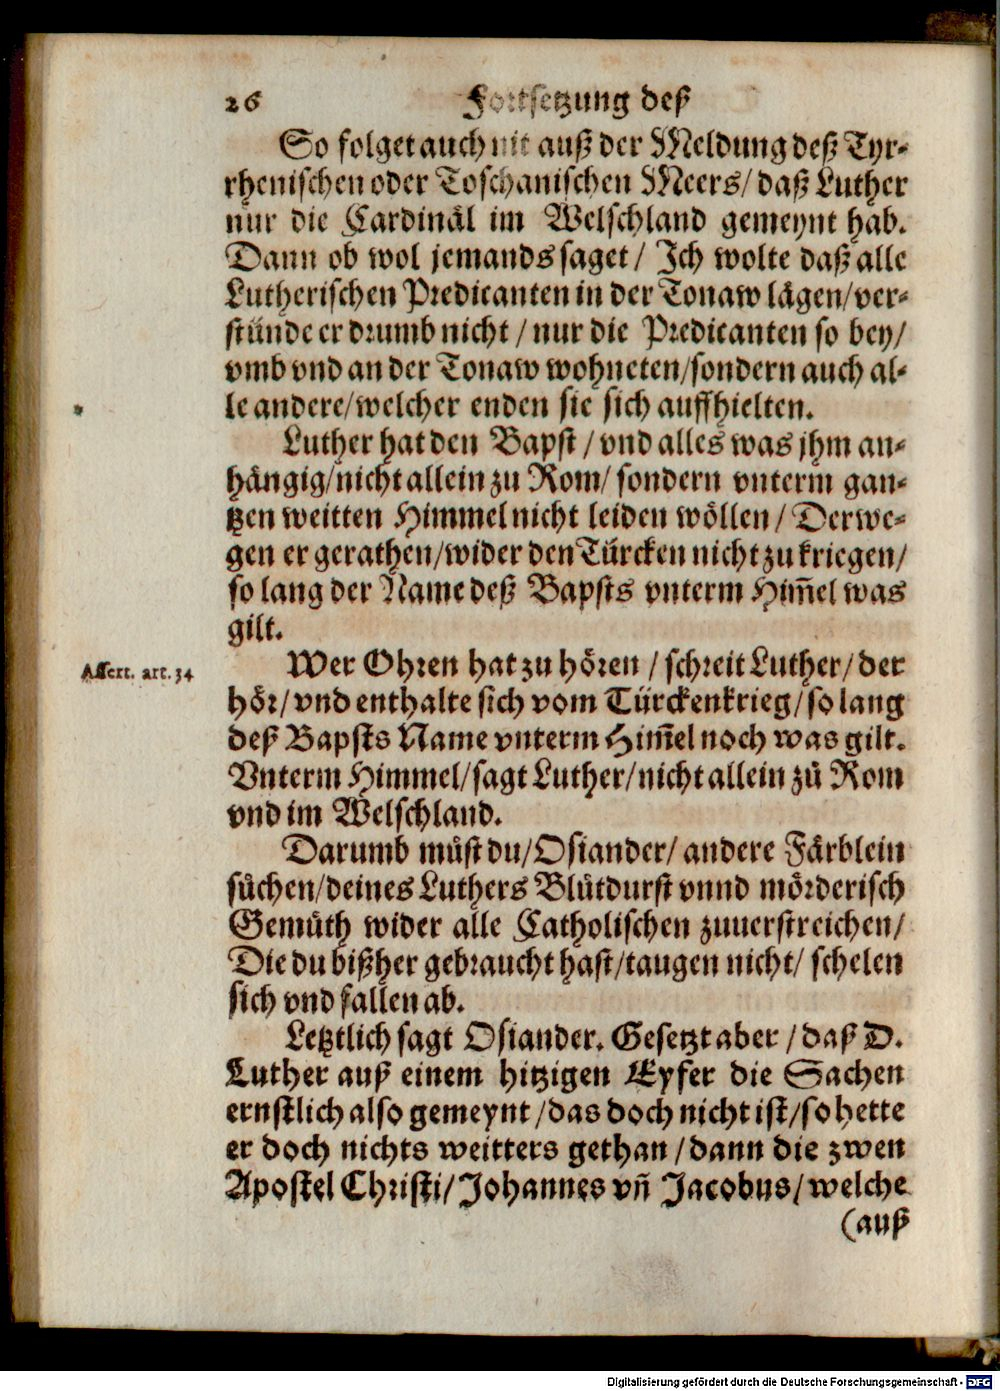 26 Fortsetzung deß
So folget auch nit auß der Meldung deß Tyr-
rhenischen oder Toschanischen Meers/ daß Luther
nur die Cardinäl im Welschland gemeynt hab.
Dann ob wol jemands saget/ Ich wolte daß alle
Lutherischen Predicanten in der Tonaw lägen/ ver-
stünde er drumb nicht / nur die Predicanten so bey/
vmb vnd an der Tonaw wohneten/ sondern auch al-
le andere/ welcher enden sie sich auffhielten.
Luther hat den Bapst / vnd alles was jhm an-
hängig/ nicht allein zu Rom/ sondern vnterm gan-
tzen weitten Himmel nicht leiden wöllen/ Derwe-
gen er gerathen/ wider den Türcken nicht zu kriegen/
so lang der Name deß Bapsts vnterm Him̃el was
gilt.
Assert. art. 34
Wer Ohren hat zu hören / schreit Luther/ der
hör/ vnd enthalte sich vom Türckenkrieg/ so lang
deß Bapsts Name vnterm Him̃el noch was gilt.
Vnterm Himmel/ sagt Luther/ nicht allein zů Rom
vnd im Welschland.
Darumb můst du/ Osiander/ andere Färblein
sůchen/ deines Luthers Blůtdurst vnnd mörderisch
Gemůth wider alle Catholischen zuuerstreichen/
Die du bißher gebraucht hast/ taugen nicht/ schelen
sich vnd fallen ab.
Letztlich sagt Osiander. Gesetzt aber / daß D.
Luther auß einem hitzigen Eyfer die Sachen
ernstlich also gemeynt / das doch nicht ist/ so hette
er doch nichts weitters gethan / dann die zwen
Apostel Christi/ Johannes vñ Jacobus/ welche
(auß
Digitalisierung gefördert durch die Deutsche Forschungsgemeinschaft - DFG